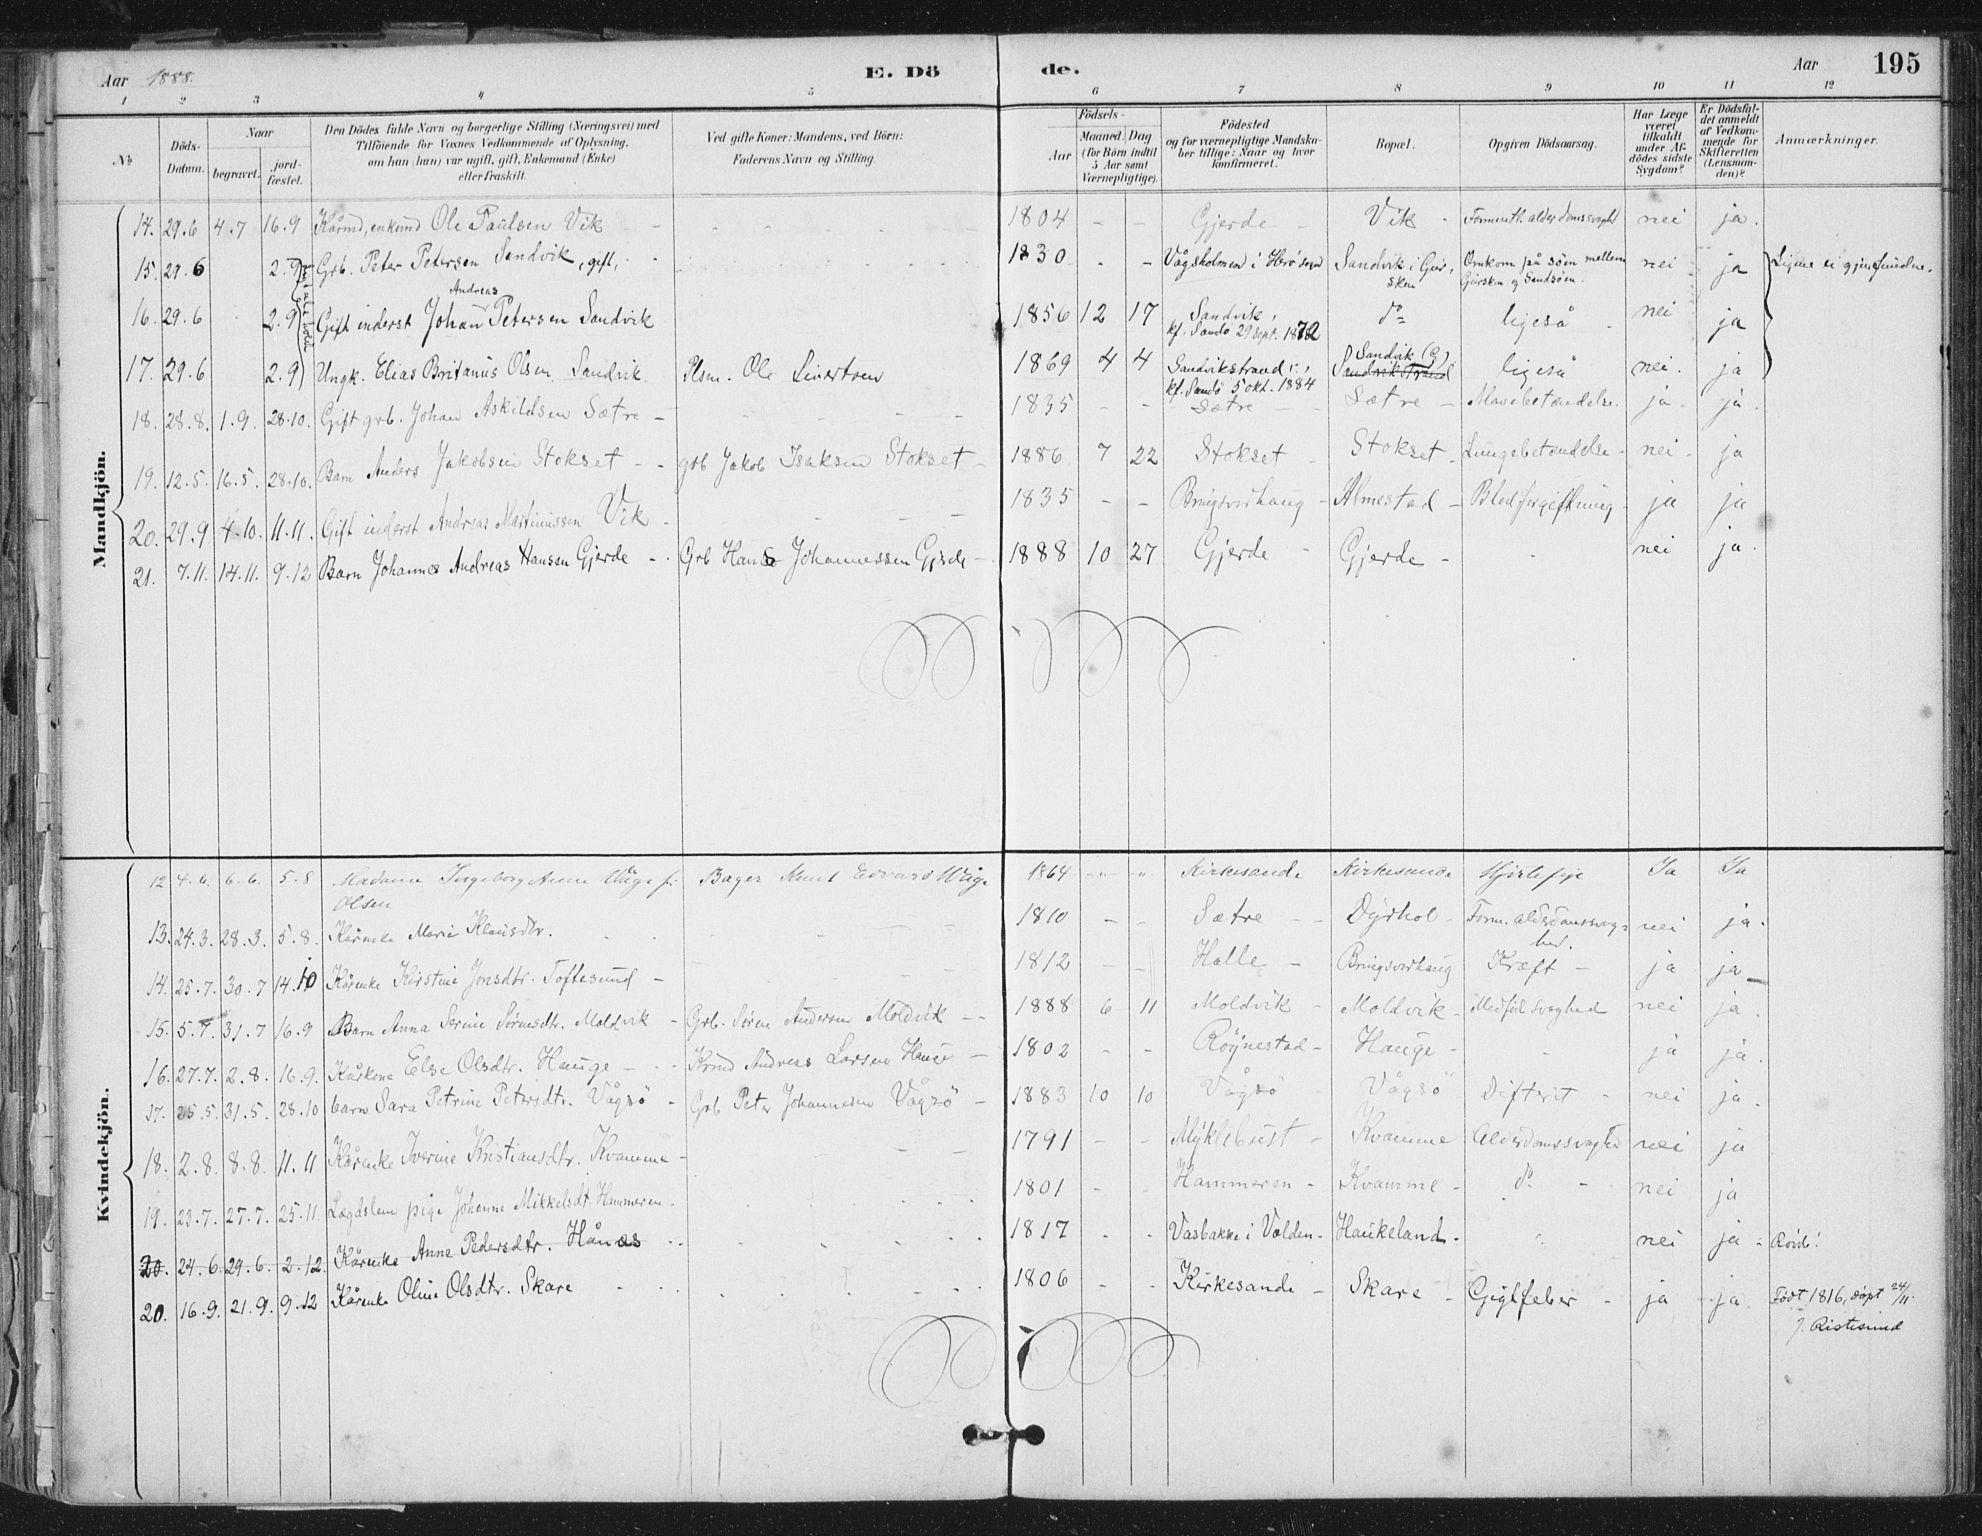 Aar 1888. E. Dö de. Aar 195
1 2 3 4 5 6 7 8 9 10 11 12
No
Döds-Datum.
Naar
begravet.
jord-fæstet.
Den Dödes fulde Navn og borgerlige Stilling (Næringsvei) med
Tilföiende for Voxnes Vedkommende af Oplysning,
om han (hun) var ugift, gift, Enkemand (Enke)
eller fraskilt.
Ved gifte Koner: Mandens, ved Börn:
Faderens Navn og Stilling.
Födsels-
Aar
Maaned. Dag
(for Börn indtil
5 Aar samt
Værnepligtige).
Födested
og for værnepligtige Mandska-
ber tillige: Naar og hvor
konfirmeret.
Bopæl.
Opgiven Dödsaarsag.
Har Læge
været
tilkaldt
under Af-
dödes sidste
Sygdom?
Er Dödsfal-
det anmeldt
af Vedkom-
mende for
Skifteretten
(Lensman-
den)?
Anmærkninger.
Mandkjön.
14. 29.6 4.7 16.9 Kårmd, enkemd Ole Paulsen Vik - 1804 - - Gjerde - Vik - Forment. alderdomssvaghd nei ja.
15. 29.6 2.9 Grb. Peter Petersen Sandvik, gift, 1830 - - Vågsholmen i Herö sogn Sandvik i Gur-
sken Omkom på söen mellem
Gursken og Sandsöen. nei ja
16. 29.6 2.9 Gift inderst Johan Andreas Petersen Sandvik 1856 12 17 Sandvik,
kf. Sandö 29 sept. 1872 do ligeså nei ja
17. 29.6 2.9 Ungk. Elias Britanus Olsen Sandvik Plsm. Ole Sivertsen 1869 4 4 Sandvikstrand,
kf. Sandö 5 okt. 1884 Sandvik
Sandvikstrand ligeså nei. ja
18. 28.8. 1.9. 28.10. Gift grb. Johan Askildsen Sætre - 1835 - - Sætre - Sætre - Mavebetændelse. ja. ja.
19. 12.5. 16.5. 28.10. Barn Anders Jakobsen Stokset - grb Jakob Isaksen Stokset - 1886 7 22 Stokset - Stokset - Lungebetændelse - nei - ja
20. 29.9 4.10. 11.11. Gift inderst Andreas Martinussen Vik - 1835 - - Bringsvorhaug - Almestad - Blodforgiftning - ja ja
21. 7.11. 14.11. 9.12 Barn Johannes Andreas Hansen Gjerde - Grb Hans Johannessen Gjerde - 1888 10 27 Gjerde - Gjerde - nei ja.
Kvindekjön.
12 4.6. 6.6. 5.8 Madame Ingeborg Anna Wåge f.
Olsen Bager Knut Edvard Wåge 1864 " " Kirkesande Kirkesande Ja Ja
13. 24.3. 28.3. 5.8. Kårenke Marie Klausdtr. 1810 - - Sætre - Dyrhol - Form. alderdomssvag-
hed. nei ja.
14. 25.7. 30.7 14.10 Kårenke Kirstine Jonsdtr. Toftesund - 1812 - - Halle - Bringsvorhaug Kræft - ja ja
15. 5.7. 31.7 16.9 Barn Anna Serine Sörensdtr. Moldvik - Grb. Sören Andersen Moldvik - 1888 6 11 Moldvik - Moldvik - Medföd svaghed nei ja.
16. 27.7. 2.8. 16.9. Kårkone Else Olsdtr. Hauge - Krmd Andreas Larsen Hauge - 1802 - - Röynestad - Hauge - ja ja.
17. 25.5. 31.5. 28.10 barn Sara Petrine Petersdtr. Vågsö - Grb Peter Johannesen Vågsö - 1883 10 10 Vågsö Vågsö Difterit - nei ja.
18. 2.8. 8.8. 11.11 Kårenke Iverine Kristiansdtr. Kvamme - 1791 - - Myklebust - Kvamme Alderdomssvaghd nei ja
19. 23.7. 27.7. 25.11. Lægdslem pige Johanne Mikkelsdt. Hammeren. 1801 - - Hammeren - Kvamme - do - nei ja
20. 24.6. 29.6. 2.12. Kårenke Anne Pedersdtr. Hånæs 1817 - - Vasbakke i Volden - Haukeland - nei ja -
20. 16.9. 21.9. 9.12 Kårenke Oline Olsdtr. Skare 1806 - - Kirkesande - Skare - Gigtfeber - ja ja. Född 1816, döpt 24/11.
Ristesund